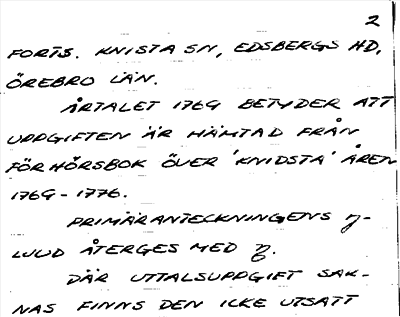 2
FORTS. KNISTA SN, EDSBERGS HD,
ÖREBRO LÄN.
ÅRTALET 1769 BETYDER ATT
UPPGIFTEN ÄR HÄMTAD FRÅN
FÖRHÖRSBOK ÖVER 'KNIDSTA' ÅREN
1769-1776.
PRIMÄRANTECKNINGENS ŋ-
LJUD ÅTERGES MED
DÄR UTTALSUPPGIFT SAK-
NAS FINNS DEN ICKE UTSATT